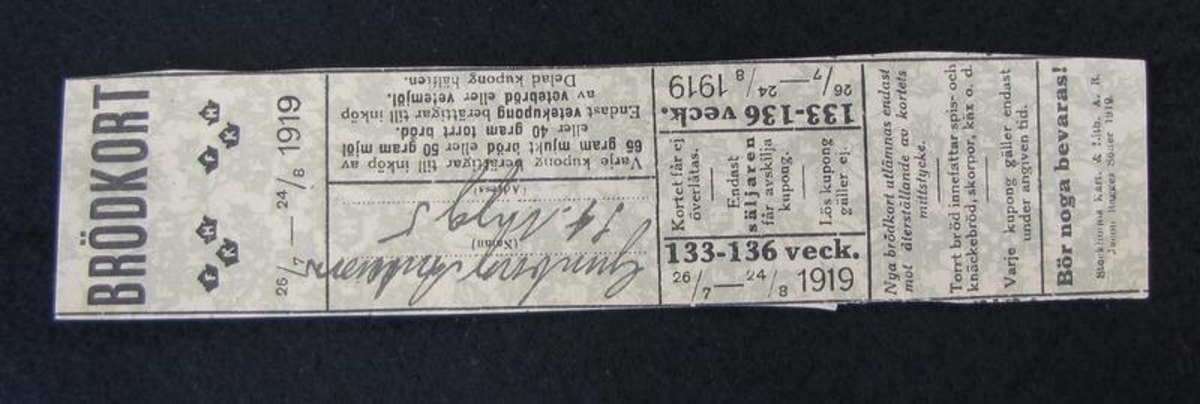 BRÖDKORT
26/7—24/8 1919
(Namn)
(Adress)
Varje kupong berättigar till inköp av
65 gram mjukt bröd eller 50 gram mjöl
eller 40 gram torrt bröd.
Endast vetekupong berättigar till inköp
av vetebröd eller vetemjöl.
Delad kupong hälften.
133-136 veck.
26/7—24/8 1919
Kortet får ej
överlåtas.
Endast
säljaren
får avskilja
kupong.
Lös kupong
gäller ej.
133-136 veck.
26/7—24/8 1919
Nya brödkort utlämnas endast
mot återställande av kortets
mittstycke.
Torrt bröd innefattar spis- och
knäckebröd, skorpor, käx o. d.
Varje kupong gäller endast
under angiven tid.
Bör noga bevaras!
Stockholms Kart. & Lith. A. B.
Jacob Bagges Söner 1919.